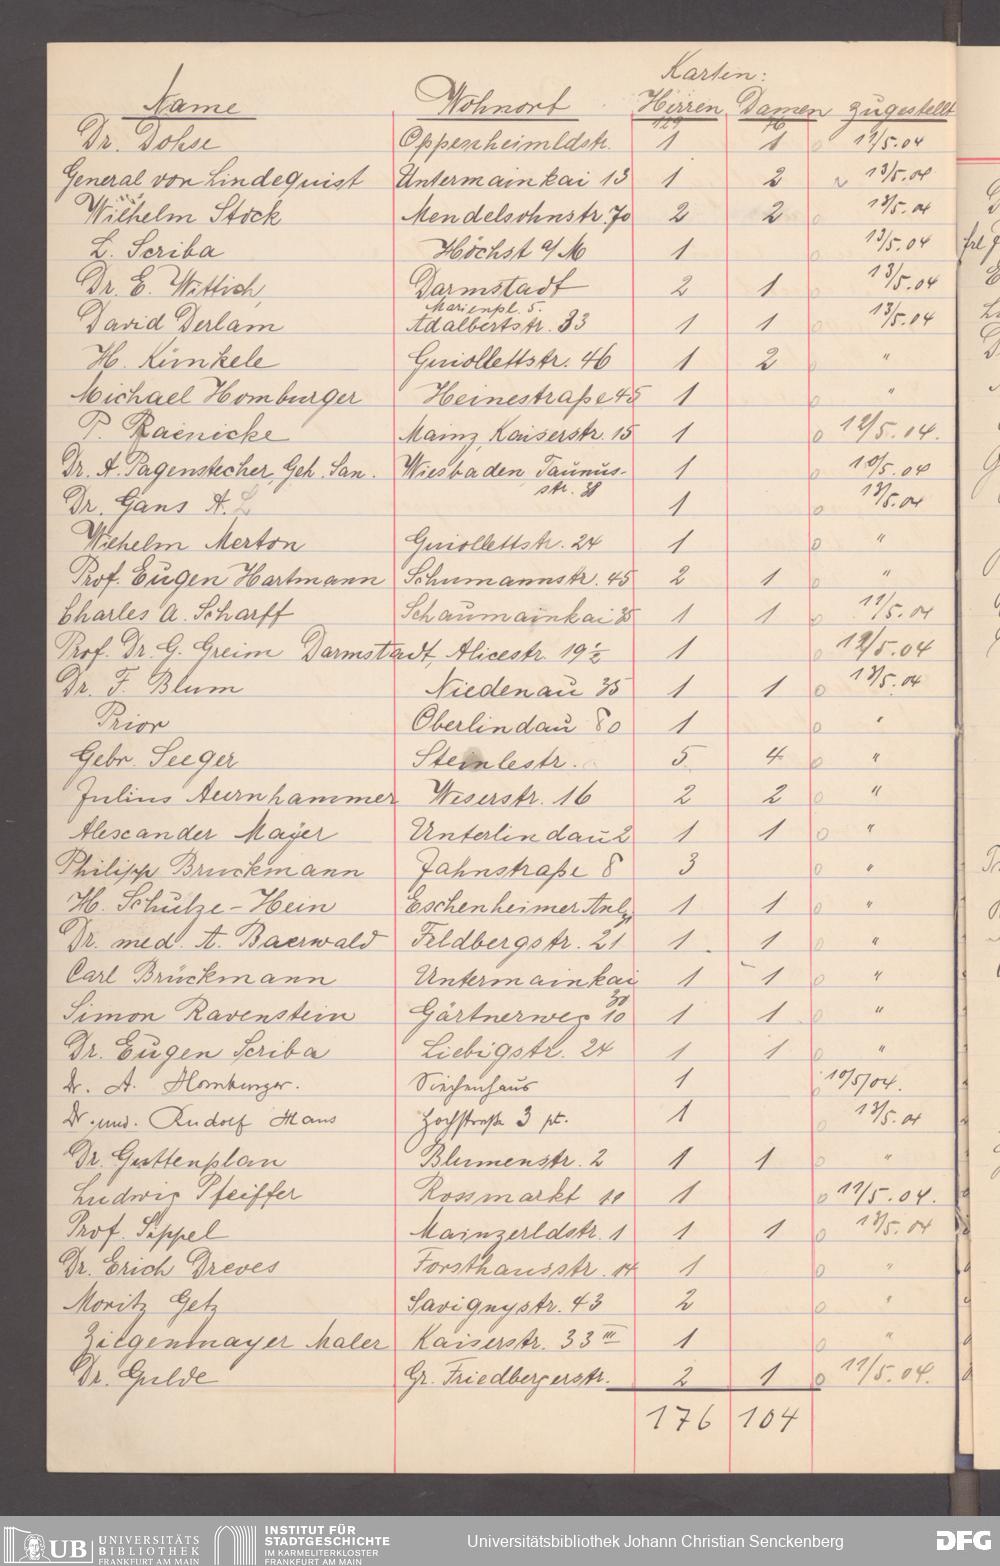 Karten:
Name Wohnort Herren Damen zugestellt
Dr. Dohse Oppenheimldstr. 1 1 o 11/5.04
General von Lindequist Untermainkai 13 1 2 13/5.04
Wilhelm Stock Mendelsohnstr. 70 2 2 o 13/5.04
L. Scriba Höchst a/M 1 o 13/5.04
Dr. E. Wittich Darmstadt 2 1 o 13/5.04
Marienpl. 5.
David Derlam Adalbertstr. 33 1 1 13/5.04
H. Künkele Guiollettstr. 46 1 2 o "
Michael Homburger Heinestraße 45 1 o "
P. Raenicke Mainz, Kaiserstr. 15 1 o 12/5.04.
Dr. A. Pagenstecher, Geh. San. Wiesbaden Taunus- 1 o 10/5.04
str. 38
Dr. Gans A. L 1 o 13/5.04
Wilhelm Merton Guiollettstr. 24 1 o "
Prof. Eugen Hartmann Schumannstr. 45 2 1 o "
Charles A. Scharff Schaumainkai 35 1 1 o 11/5.04
Prof. Dr. G. Greim Darmstadt, Alicestr. 19 1/2 1 o 12/5.04
Dr. F. Blum Niedenau 35 1 1 o 13/5.04
Prior Oberlindau 80 1 o "
Gebr. Seeger Steinlestr. 5 4 o "
Julius Aurnhammer Weserstr. 16 2 2 o "
Alexander Mayer Unterlindau 2 1 1 o "
Philipp Bruckmann Jahnstraße 8 3 o "
H. Schulze-Hein Eschenheimer Anlg. 1 1 o "
Dr. med. A. Baerwald Feldbergstr. 21 1 1 o "
Carl Brückmann Untermainkai 1 1 o "
30
Simon Ravenstein Gärtnerweg 10 1 1 o "
Dr. Eugen Scriba Liebigstr. 24 1 1 o "
Dr. A. Homburger. Siechenhaus 1 o 10/5/04.
Dr. med. Rudolf Haus Hochstraße 3 pt. 1 o 13/5.04
Dr. Guttenplan Blumenstr. 2 1 1 o "
Ludwig Pfeiffer Rossmarkt 10 1 o 11/5.04.
Prof. Sippel Mainzerldstr. 1 1 1 o 13/5.04
Dr. Erich Dreves Forsthausstr. 14 1 o "
Moritz Getz Savignystr. 43 2 o "
Ziegenmayer Maler Kaiserstr. 33 III 1 o "
Dr. Gulde Gr. Friedbergerstr. 2 1 o 11/5.04.
176 104
UB UNIVERSITÄTS
BIBLIOTHEK
FRANKFURT AM MAIN
INSTITUT FÜR
STADTGESCHICHTE
IM KARMELITERKLOSTER
FRANKFURT AM MAIN
Universitätsbibliothek Johann Christian Senckenberg
DFG